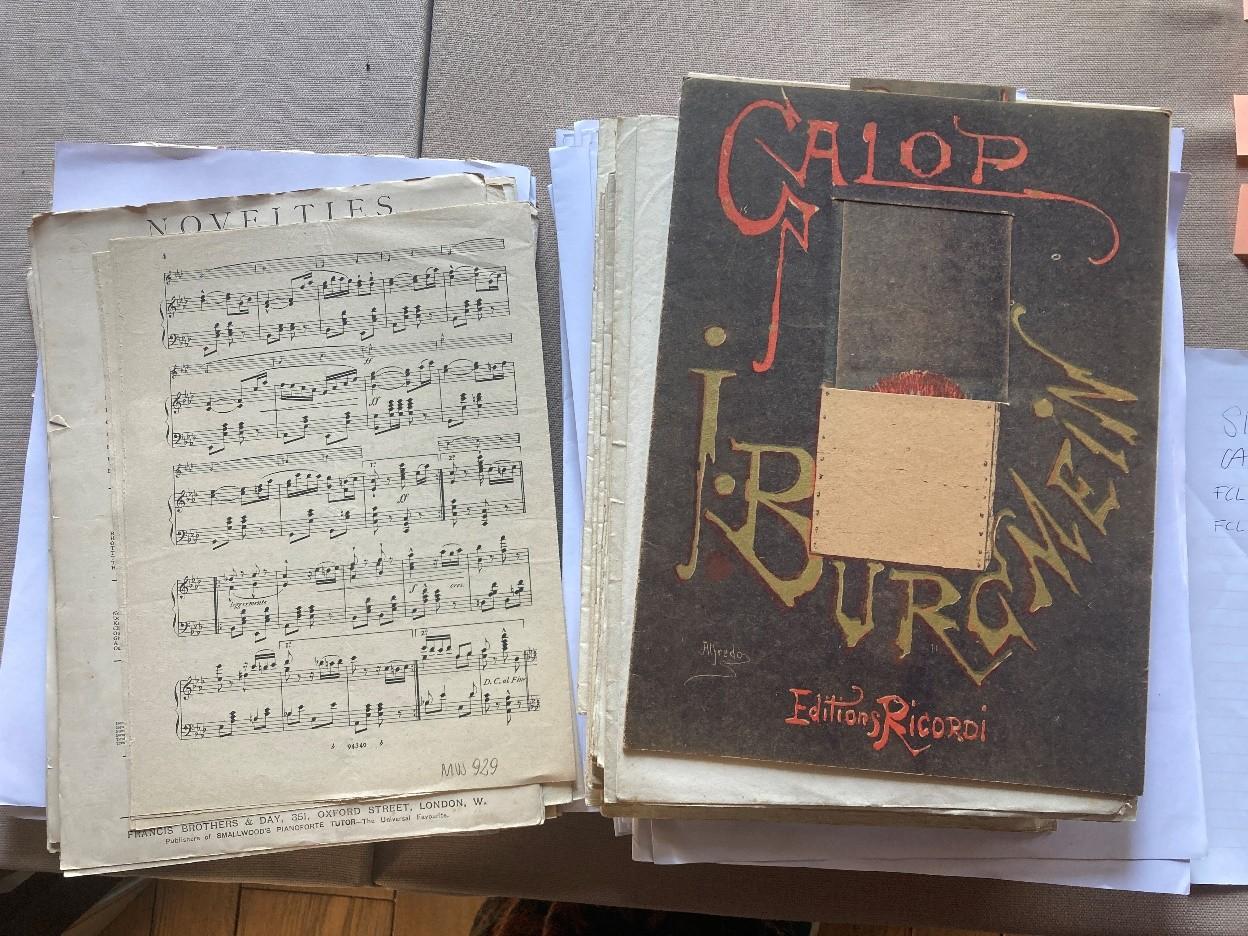 NOVELTIES
ff
1ª
2ª
ff
ff
leggermente
ff
cres.
1ª
2ª
D.C. al Fine
b 94340 b
MW 929
FRANCIS BROTHERS & DAY, 351, OXFORD STREET, LONDON, W.
Publishers of SMALLWOOD'S PIANOFORTE TUTOR—The Universal Favourite.
GALOP
J. BURGMEIN
Alfredo
Editions RICORDI
FCL
FCL